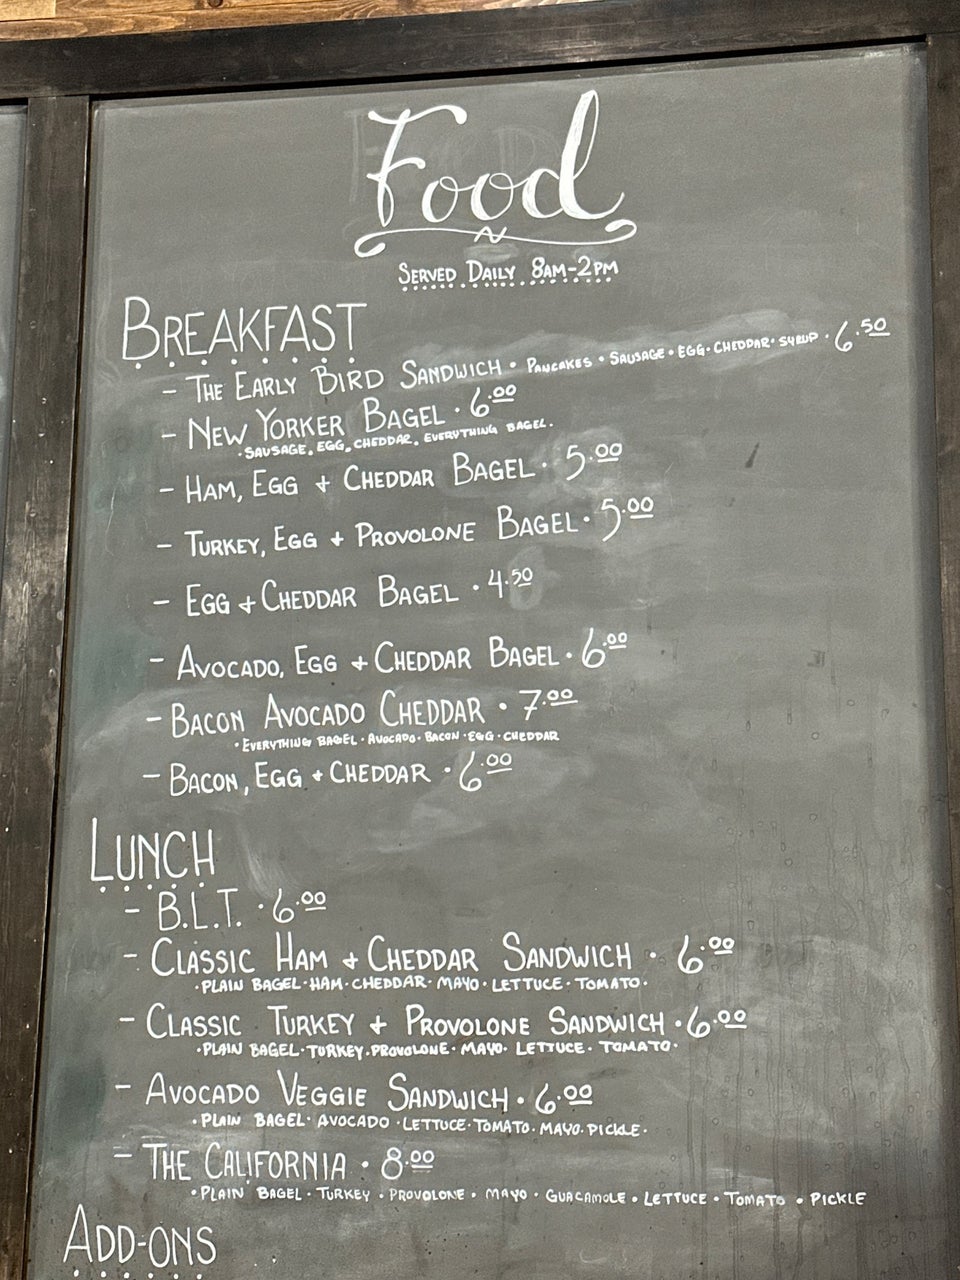 Food
SERVED DAILY 8AM-2PM
BREAKFAST
- THE EARLY BIRD SANDWICH • PANCAKES • SAUSAGE • EGG • CHEDDAR • SYRUP • 6.50
- NEW YORKER BAGEL • 6.00
• SAUSAGE, EGG, CHEDDAR, EVERYTHING BAGEL.
- HAM, EGG + CHEDDAR BAGEL • 5.00
- TURKEY, EGG + PROVOLONE BAGEL • 5.00
- EGG + CHEDDAR BAGEL • 4.50
- AVOCADO, EGG + CHEDDAR BAGEL • 6.00
- BACON AVOCADO CHEDDAR • 7.00
• EVERYTHING BAGEL • AVOCADO • BACON • EGG • CHEDDAR
- BACON, EGG + CHEDDAR • 6.00
LUNCH
- B.L.T. • 6.00
- CLASSIC HAM + CHEDDAR SANDWICH • 6.00
• PLAIN BAGEL • HAM • CHEDDAR • MAYO • LETTUCE • TOMATO •
- CLASSIC TURKEY + PROVOLONE SANDWICH • 6.00
• PLAIN BAGEL • TURKEY • PROVOLONE • MAYO • LETTUCE • TOMATO •
- AVOCADO VEGGIE SANDWICH • 6.00
• PLAIN BAGEL • AVOCADO • LETTUCE • TOMATO • MAYO • PICKLE •
- THE CALIFORNIA • 8.00
• PLAIN BAGEL • TURKEY • PROVOLONE • MAYO • GUACAMOLE • LETTUCE • TOMATO • PICKLE
ADD-ONS